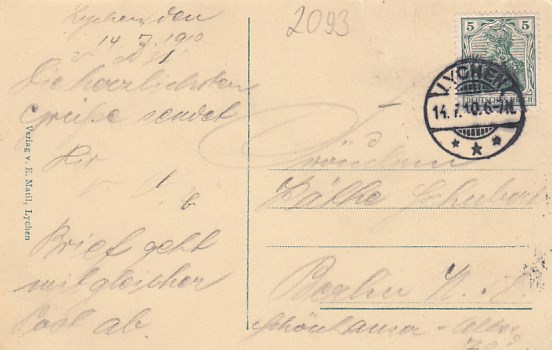 2093
Lychen, den
14 7. 1910
Die herzlichsten
Grüße sendet
Dir
Brief geht
mit gleicher
Post ab
Verlag v. E. Mattl, Lychen
5 5
DEUTSCHES REICH
LYCHEN
14.7.10.6-7N.
* * *
Fräulein
Käthe Schubert
Berlin N.
Schönhauser-Allee